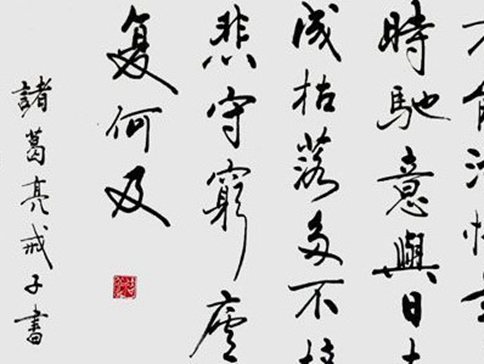 時馳意與日
成枯落多不接
悲守窮廬
复何及
諸葛亮戒子書